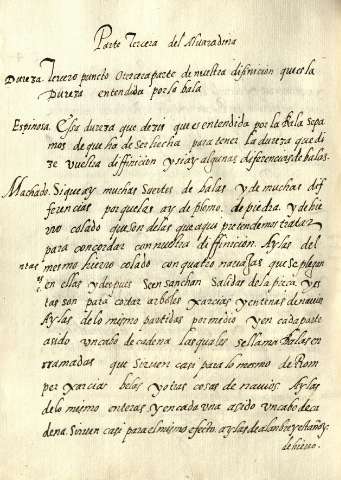 Parte Tercera del Alvaradina
Dureza. Tercero puncto o tercera parte de nuestra difinicion que es la
Dureza entendida por la bala
Espinosa. Essa dureza que dezis que es entendida por la Bala sepa
mos de que ha de ser hecha para tener la dureza que di
ze vuestra diffinicion y si ay algunas diferencias de balas.
Machado. Si que ay muchas suertes de balas y de muchas dif
ferencias porque las ay de plomo. de piedra y de hie
rro colado que son de las que aqui pretendemos tratar
para concordar con nuestra diffinicion. Ay las del
mesmo hierro colado con quatro navajas que se plegan
en ellas y despues se ensanchan salidas de la pieça y es
tas son para cortar arboles xarcias y entenas de navio
Ay las de lo mismo partidas por medio y en cada parte
asido un cabo de cadena las quales se llaman Balas en
rramadas que sirven casi para lo mesmo de Rom
per xarcias belas y otras cosas de navios. Ay las
de lo mismo enteras y en cada una asido un cabo de ca
dena. Sirven casi para el mismo efecto. ay las de alambre y estaño y
de hierro.